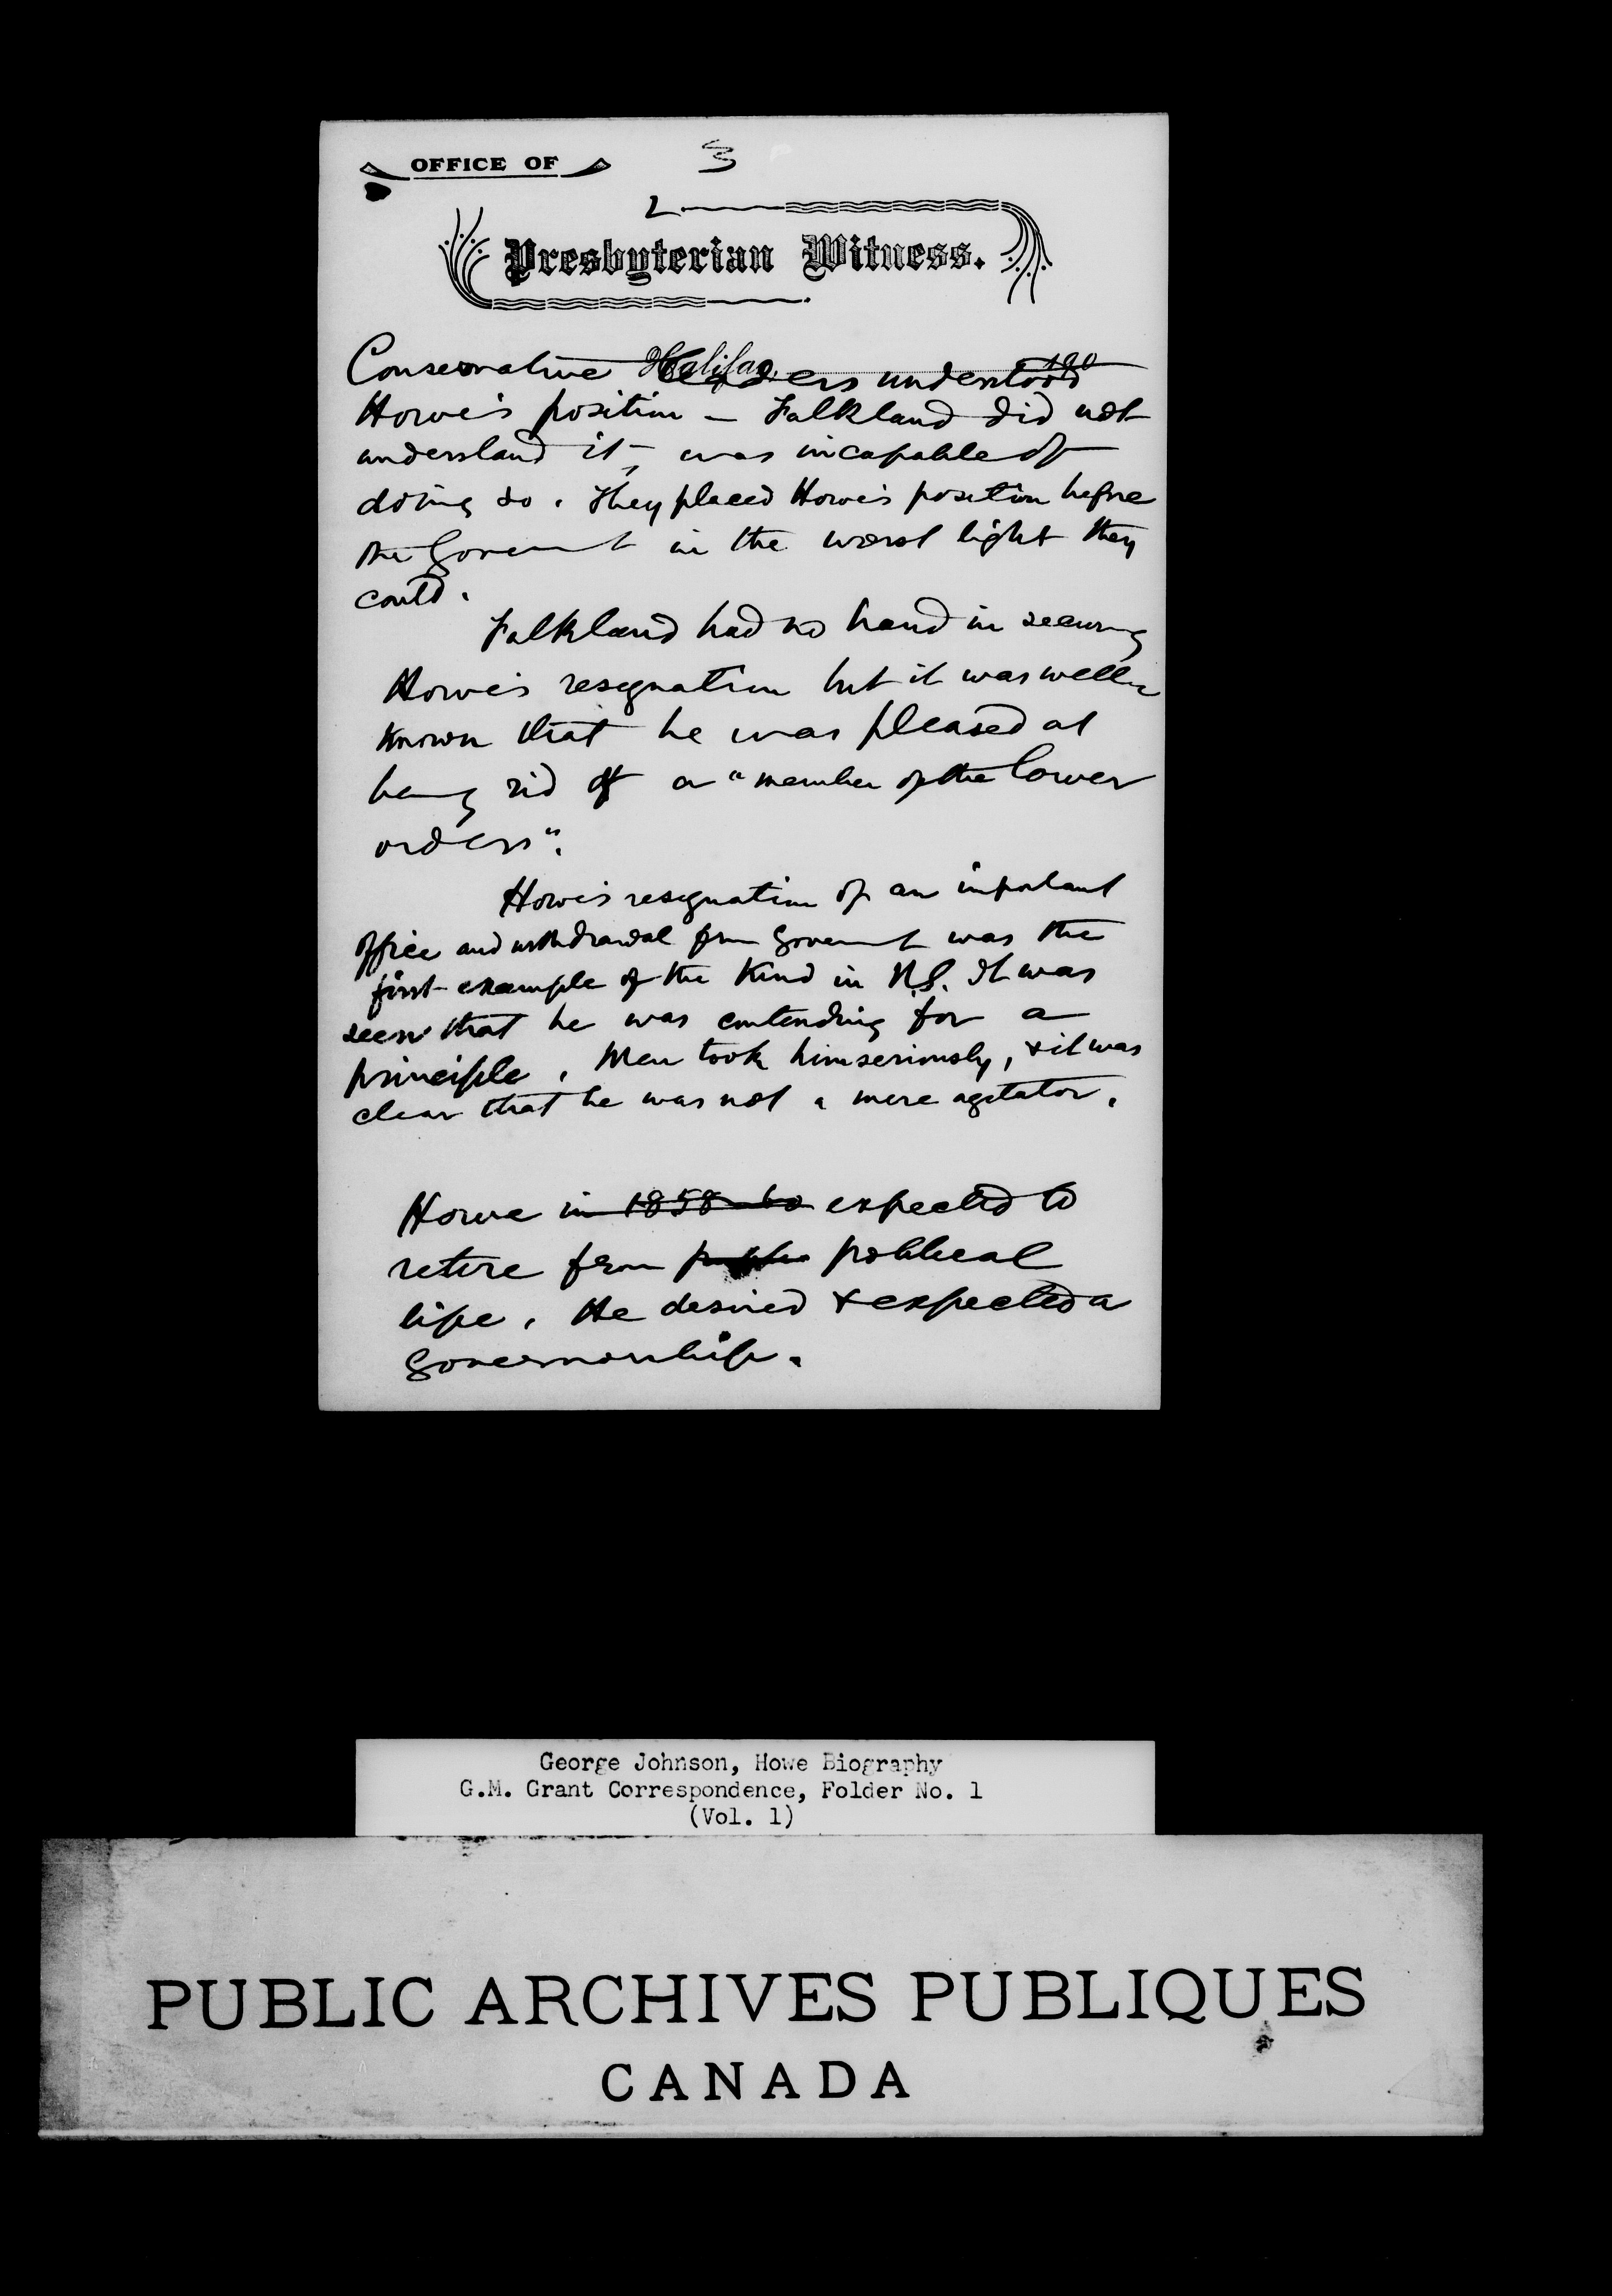 OFFICE OF
3
2
Presbyterian Witness.
Halifax, 190
Conservative leaders understood
Howe's position – Falkland did not
understand it, was incapable of
doing so. They placed Howe's position before
the Goverment in the worst light they
could.
Falkland had no hand in securing
Howe's resignation but it was well
known that he was pleased at
being rid of a "member of the lower
orders".
Howe's resignation of an important
office and withdrawal from Goverment was the
first example of the kind in N.S. It was
seen that he was contending for a
principle. Men took him seriously, & it was
clear that he was not a mere agitator.
Howe in 1858-60 expected to
retire from political
life. He desired & expected a
Governorship.
George Johnson, Howe Biography
G.M. Grant Correspondence, Folder No. 1
(Vol. 1)
PUBLIC ARCHIVES PUBLIQUES
CANADA